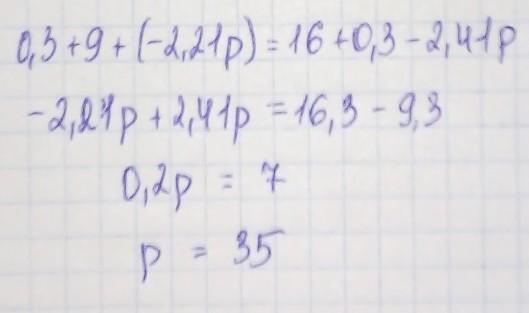 0,3+9+(-2,21p)=16+0,3-2,41p
-2,21p+2,41p=16,3-9,3
0,2p = 7
p = 35